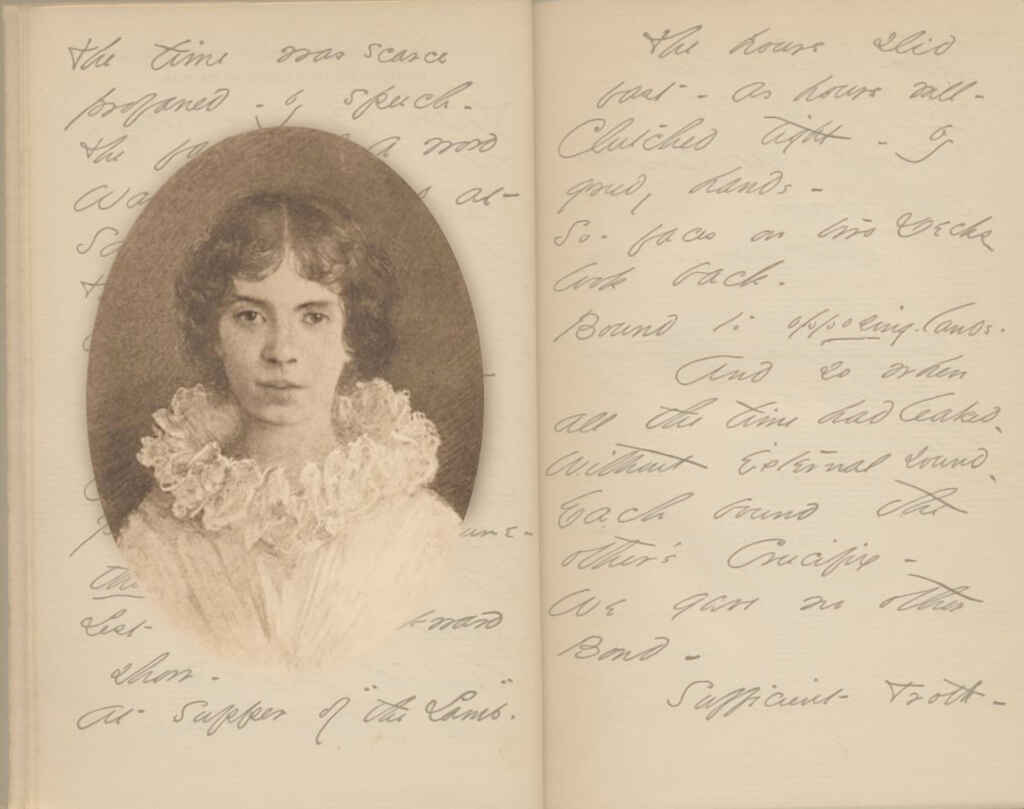 The time was scarce
profaned - by speech -
The a word
at -
the
Lest
Show -
At Supper of "the Lamb".
The hours slid
fast - as hours will -
Clutched tight - by
greedy hands -
So - faces on two Decks
look back -
Bound to opposing lands -
And so when
all the time had leaked,
Without External sound,
Each bound the
other's Crucifix -
We gave no other
Bond -
Sufficient troth -